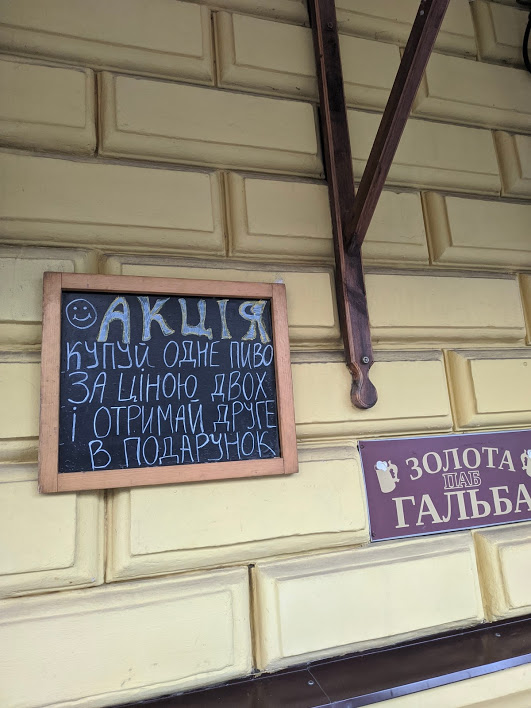 АКЦІЯ
КУПУЙ ОДНЕ ПИВО
ЗА ЦІНОЮ ДВОХ
І ОТРИМАЙ ДРУГЕ
В ПОДАРУНОК
ЗОЛОТА
ПАБ
ГАЛЬБА